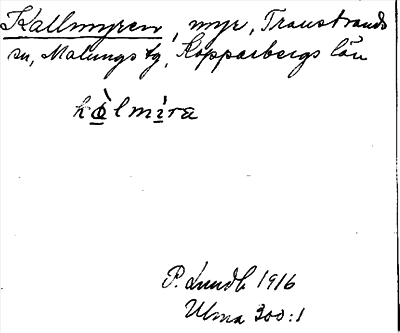 Kallmyren, myr, Transtrands
sn, Malungs tg, Kopparbergs län
kàlmìra
P. Lundb 1916
Ulma 300:1